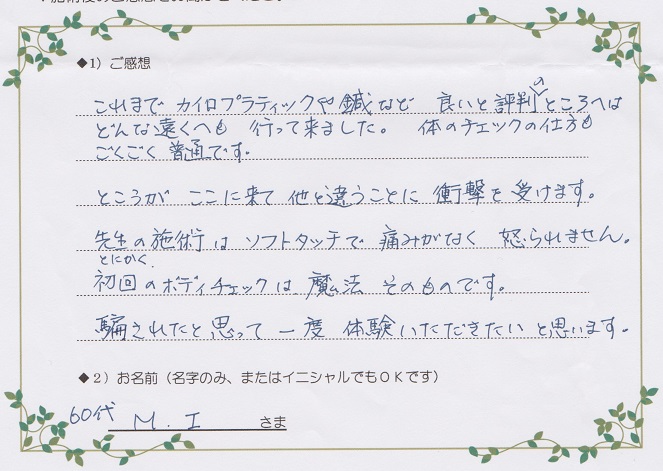 ◆1）ご感想
これまで カイロプラティックや鍼など 良いと評判のところへは
どんな遠くへも 行って来ました。 体のチェックの仕方も
ごくごく 普通です。
ところが ここに来て 他と違うことに 衝撃を 受けます。
先生の施術は ソフトタッチで 痛みがなく 怒られません。
とにかく
初回のボディチェックは 魔法 そのものです。
騙されたと 思って 一度 体験いただきたい と思います。
◆２）お名前（名字のみ、またはイニシャルでもＯＫです）
60代 M . I さま